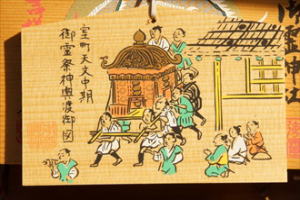 室町天文中期
御霊祭神輿渡御図
御霊神社